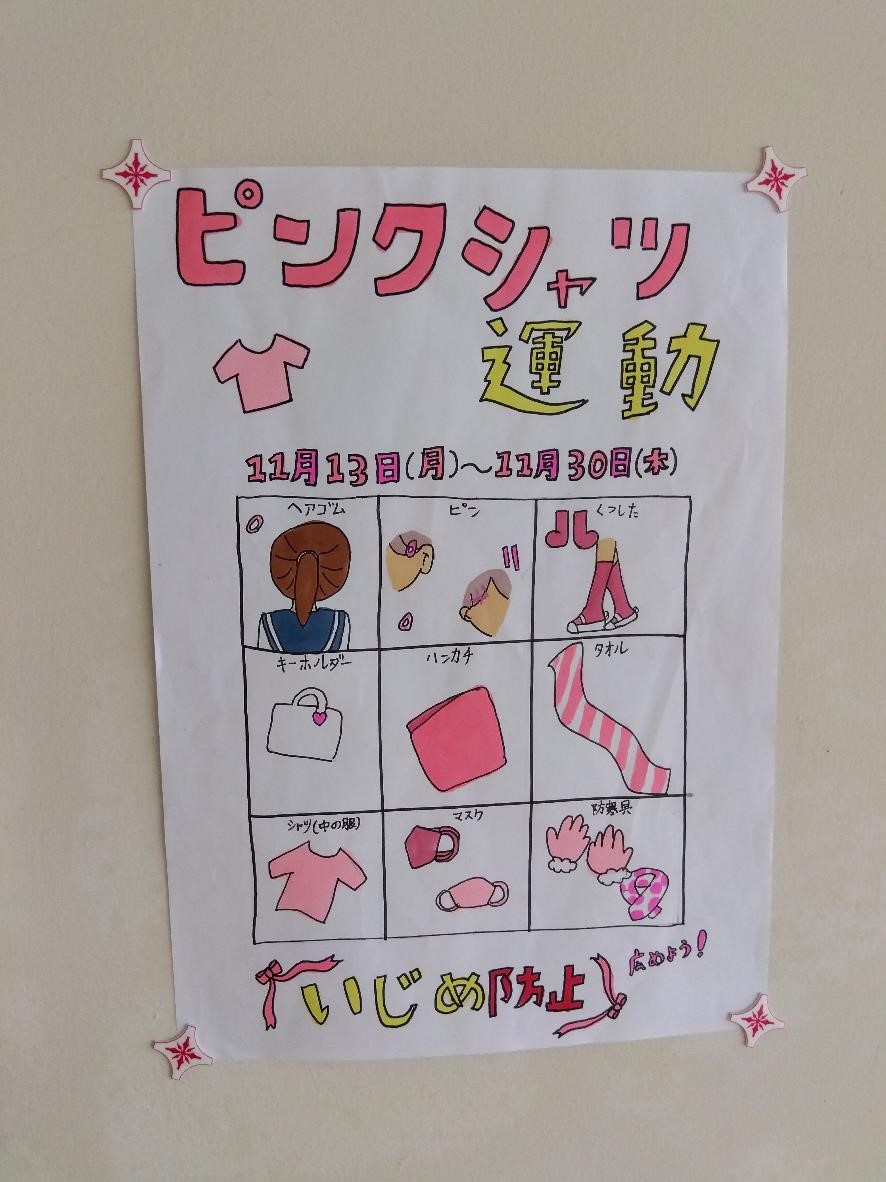 ピンクシャツ
運動
11月13日(月)～11月30日(木)
ヘアゴム
ピン
くつした
キーホルダー
ハンカチ
タオル
シャツ(中の服)
マスク
防寒具
いじめ防止
広めよう!